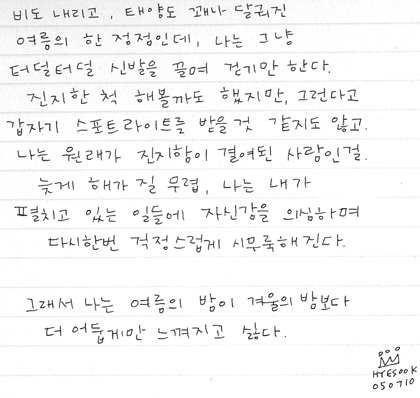 비도 내리고, 태양도 꽤나 달궈진
여름의 한 정점인데, 나는 그냥
터덜터덜 신발을 끌며 걷기만 한다.
진지한 척 해볼까도 했지만, 그런다고
갑자기 스포트라이트를 받을것 같지도 않고.
나는 원래가 진지함이 결여된 사람인걸.
늦게 해가 질 무렵, 나는 내가
펼치고 있는 일들에 자신감을 의심하며
다시한번 걱정스럽게 시무룩해진다.
그래서 나는 여름의 밤이 겨울의 밤보다
더 어둡게만 느껴지고 싫다.
HYESOOK
050710